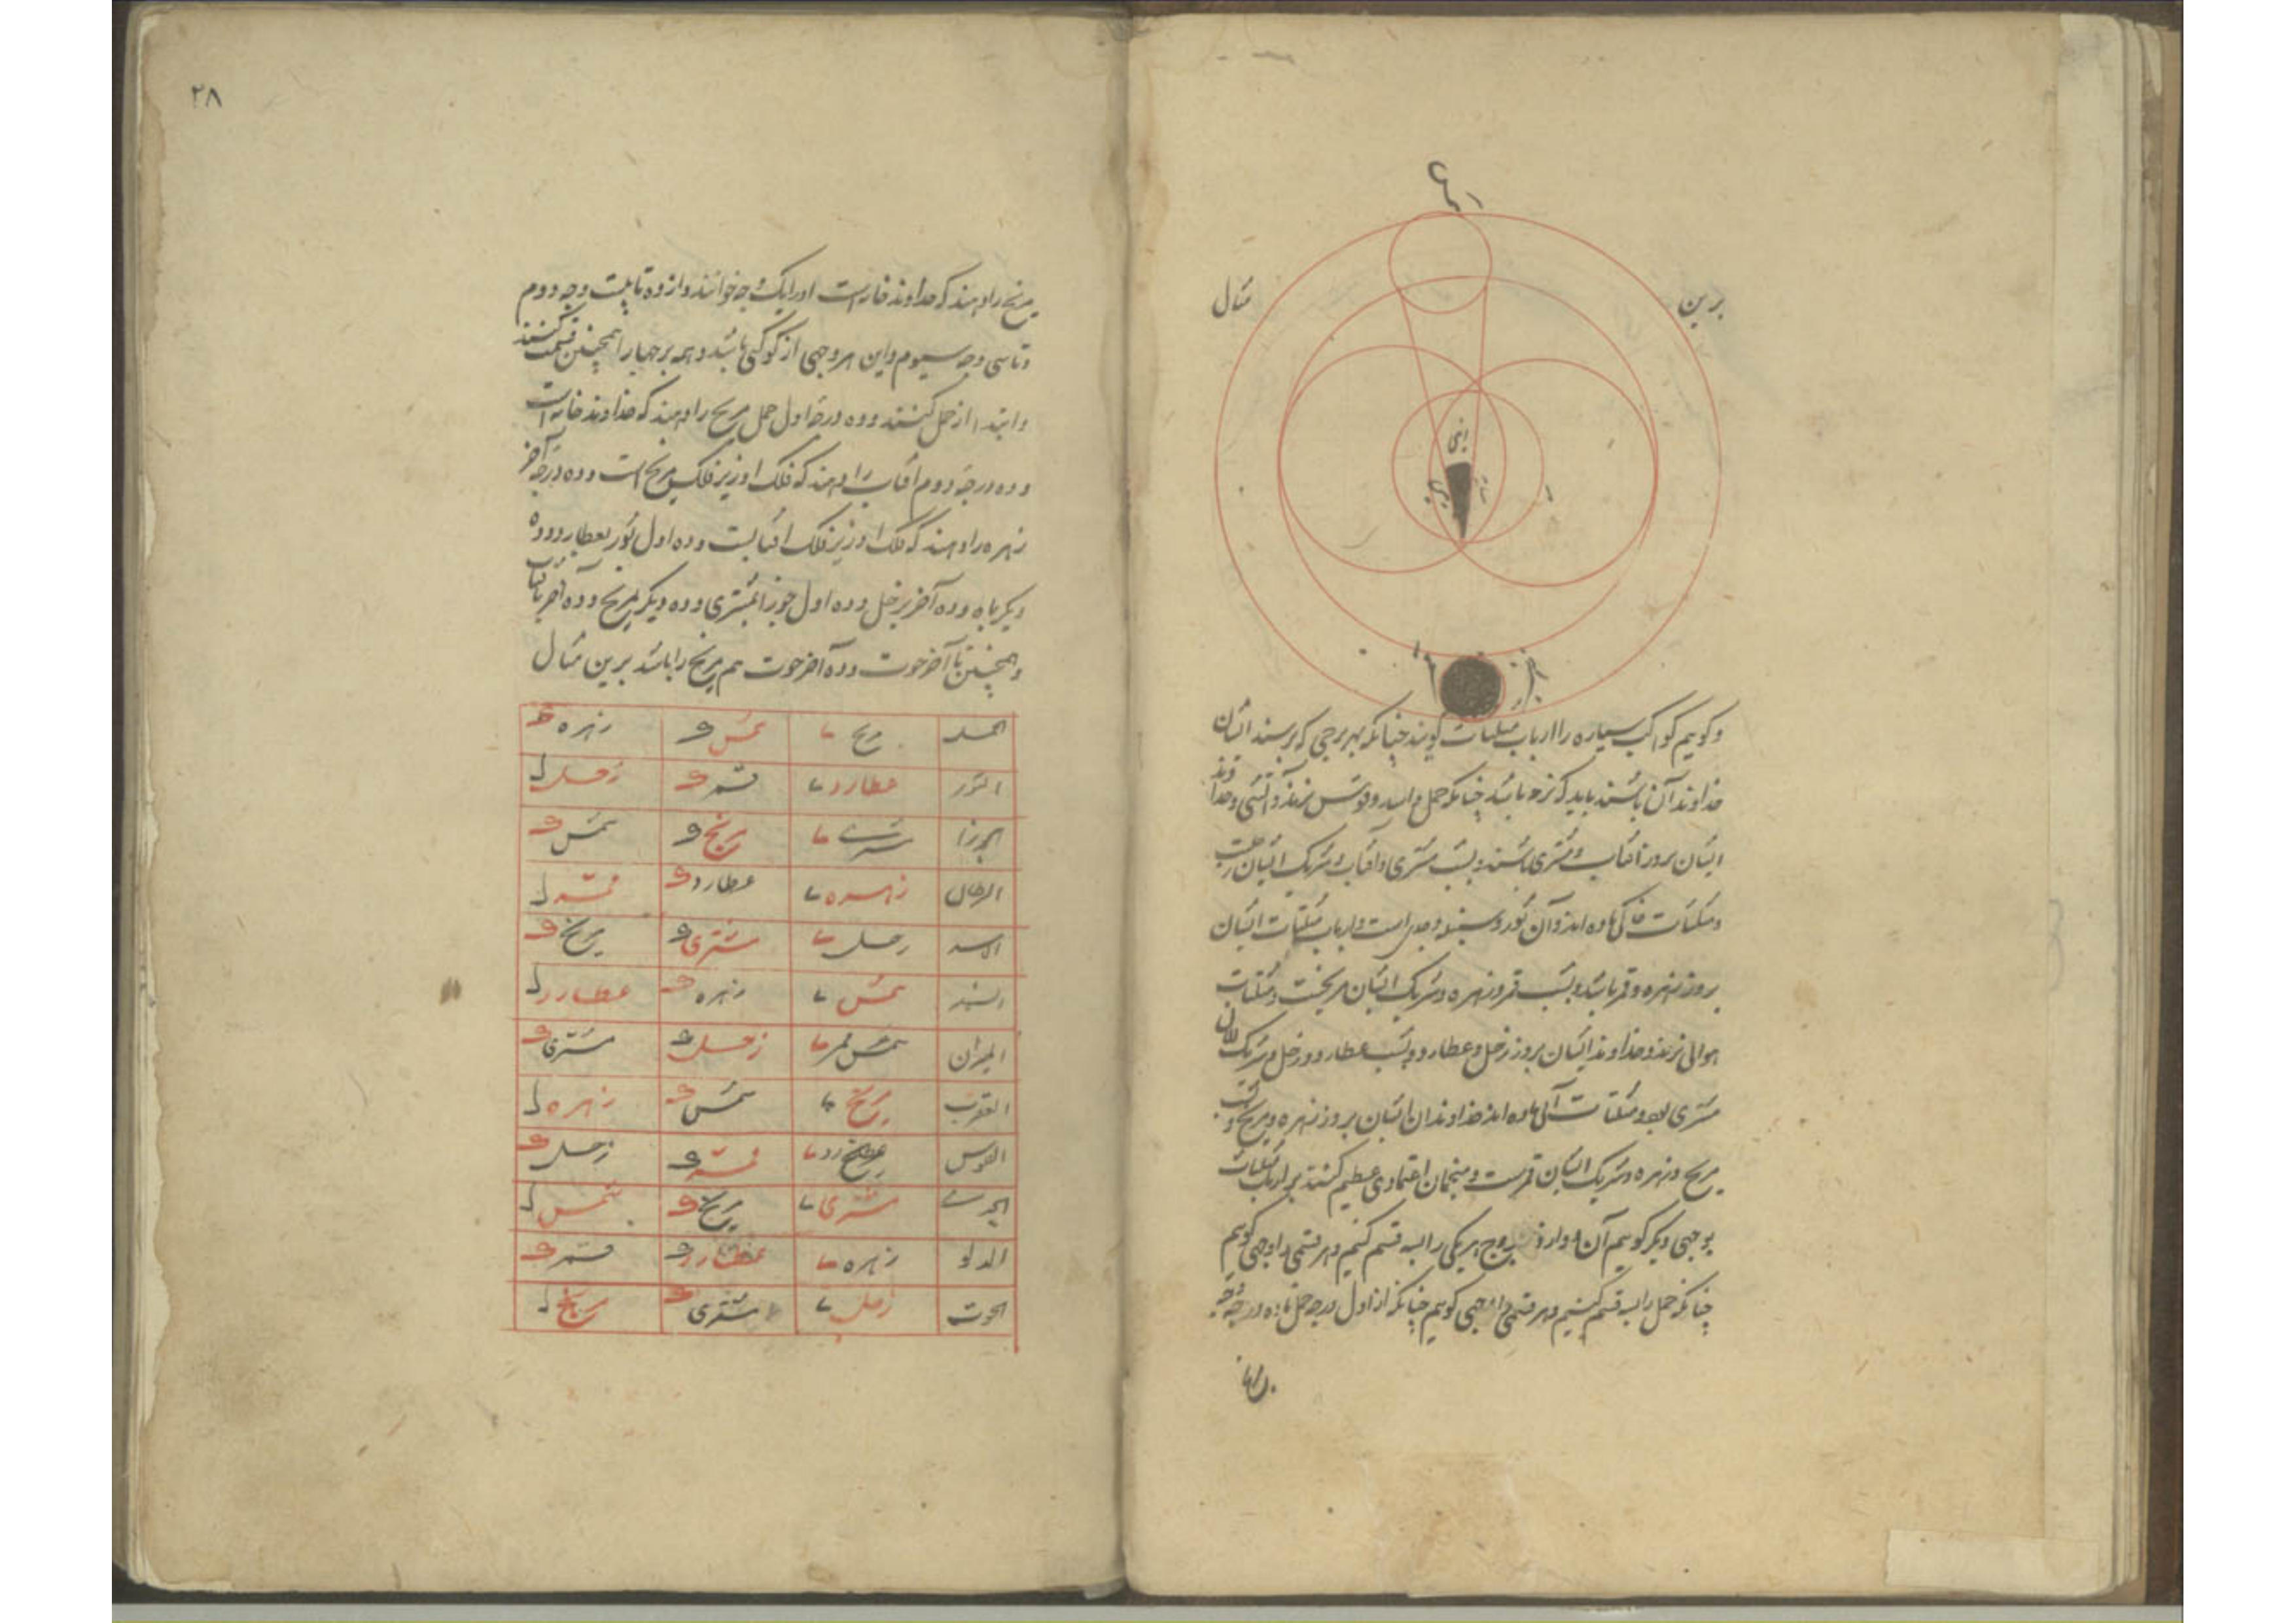 برین مثال
و کویم کواکب سیاره را ارباب مثلثات کویند چنانکه بهر برجی که برسند ایشان
خداوند آن باشند باید که نره باشد چنانکه حمل و اسد و قوس نرند و آتشی و خداوند
ایشان بروز آفتاب و مشتری باشند و بشب مشتری و آفتاب و شریک ایشان زحلست
و مثلثات خاکی ماده اند و آن ثور و سنبله و جدی است و ارباب مثلثات ایشان
بروز زهره و قمر باشد و بشب قمر و زهره و شریک ایشان مریخست و مثلثات
هوائی نرند و خداوند ایشان بروز زحل و عطارد و بشب عطارد و زحل و شریک ایشان
مشتری بود و مثلثات آبی ماده اند خداوندان ایشان بروز زهره و مریخ و بشب
مریخ و زهره و شریک ایشان قمرست و منجمان اعتمادی عظیم کنند بر ارباب مثلثات
بوجهی دیکر کوییم آن بروج هر یکی را بسه قسم کنیم و هر قسمی را وجهی کوییم
چنانکه حمل را بسه قسم کنیم و هر قسمی را وجهی کوییم چنانکه از اول درجه حمل تا ده درجه
۲۸
مریخ را دهند که خداوند خانه است او را یک وجه خوانند و از ده تا بیست وجه دوم
و تا سی وجه سیوم و این هر وجهی از کوکبی باشد و همه برجها را همچنین قسمت کنند
و ابتدا از حمل کنند و ده درجه اول حمل مریخ را دهند که خداوند خانه است
و ده درجه دوم آفتاب را دهند که فلک او زیر فلک مریخ است و ده درجه آخر
زهره را دهند که فلک او زیر فلک آفتابست و ده اول ثور بعطارد و ده
دیکر بماه و ده آخر بزحل و ده اول جوزا بمشتری و ده دیکر بمریخ و ده آخر بآفتاب
و همچنین تا آخر حوت و ده آخر حوت هم مریخ را باشد برین مثال
الحمل مریخ شمس زهره
الثور عطارد قمر زحل
الجوزا مشتری مریخ شمس
السرطان زهره عطارد قمر
الاسد زحل مشتری مریخ
السنبله شمس زهره عطارد
المیزان زحل مشتری
العقرب مریخ شمس زهره
القوس قمر زحل
الجدی مشتری مریخ شمس
الدلو زهره عطارد قمر
الحوت زحل مشتری مریخ